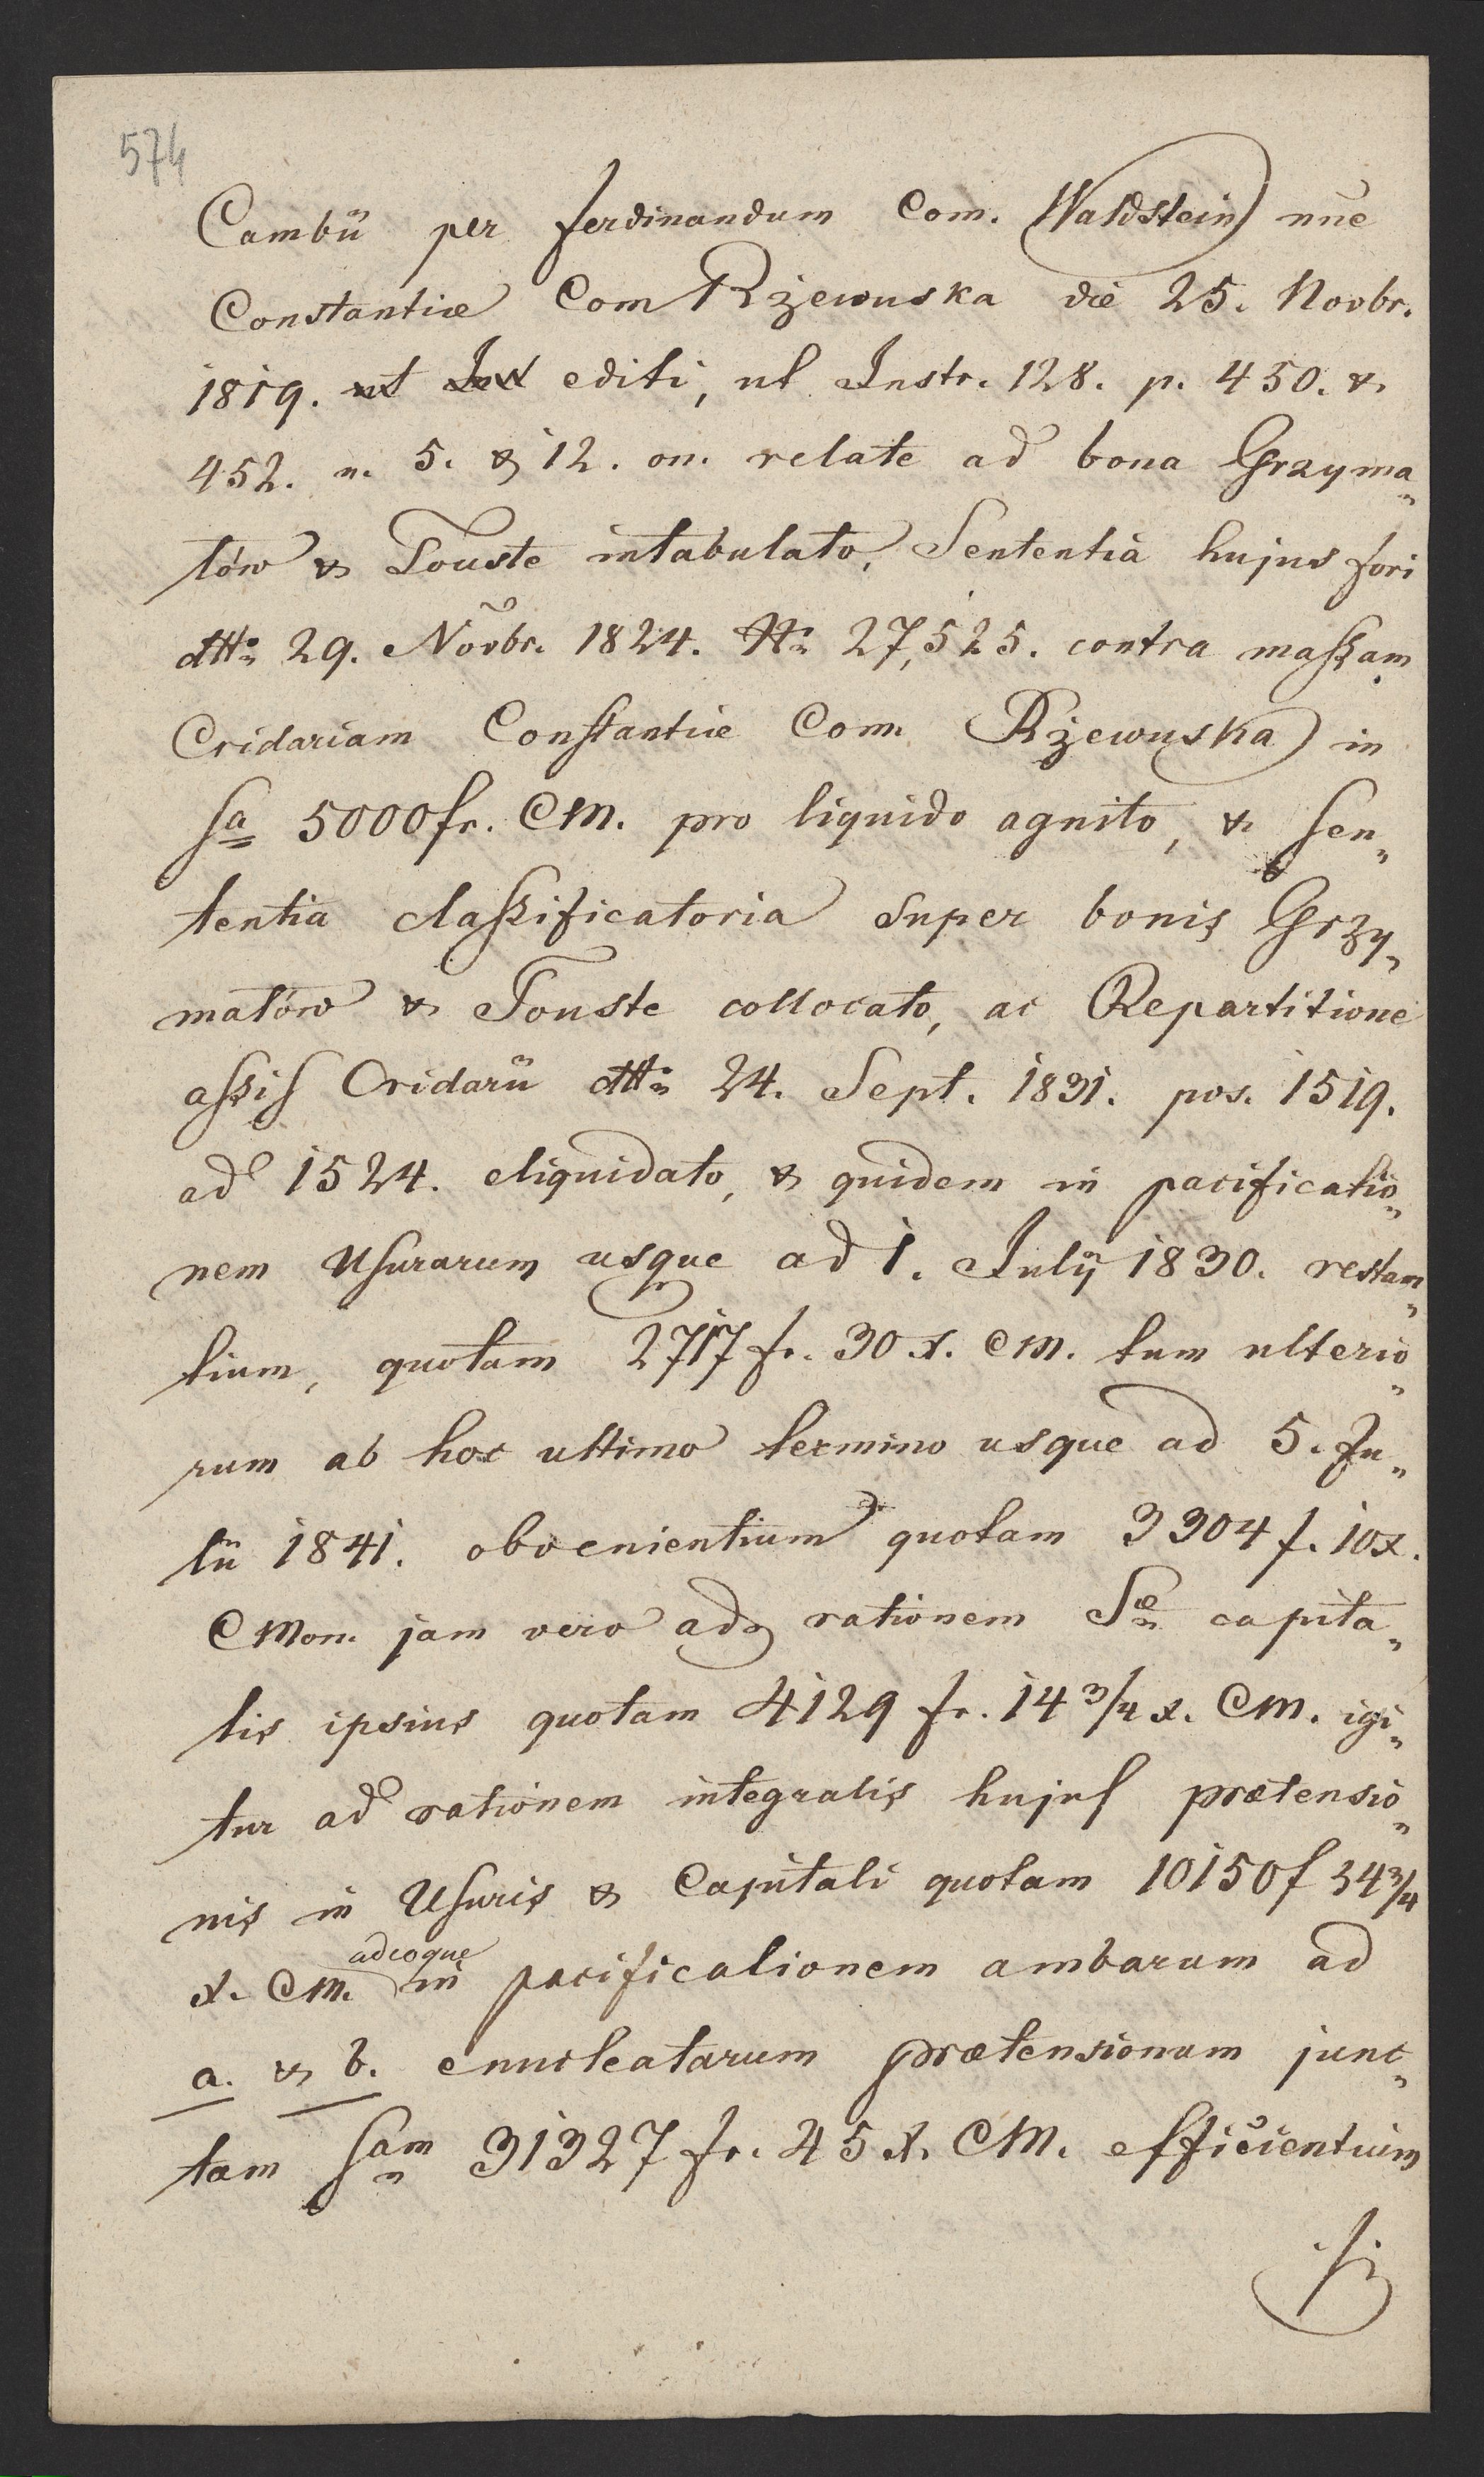 574
Cambii per Ferdinandum Com. Waldstein nñe
Constantiæ Com Rżewuska die 25. Novbr.
1819. editi, ut Instr. 128. p. 450. &
452. n. 5. & 12. on. relate ad bona Grzyma„
łów & Touste intabulato, Sententia hujus fori
dtto 29. Novbr. 1824. N: 27,525. contra massam
Cridariam Constantiæ Com. Rżewuska in
Sa 5000 fr. CM. pro liquido agnito, & Sen„
tentia classificatoria super bonis Grzy„
małów & Touste collocato, ac Repartitione
assis Cridarii dtto 24. Sept. 1831. pos. 1519.
ad 1524. eliquidato, & quidem in pacificatio„
nem Usurarum usque ad 1. Julÿ 1830. restan„
tium, quotam 2717 fr. 30 x. CM. tum ulterio„
rum ab hoc ultimo termino usque ad 5. Ju„
lii 1841. obvenientium quotam 3304 f. 10 x.
CMon. jam vero ad rationem Sæ capita„
lis ipsius quotam 4129 fr. 14 3/4 x. CM. igi„
tur ad rationem integralis hujus prætensio„
nis in Usuris & Capitali quotam 10150 f 54 3/4
x. CM. adeoque in pacificationem ambarum ad
a. & b. enucleatarum prætensionum junc„
tam Sam 31327 fr. 45 x. CM. efficientium